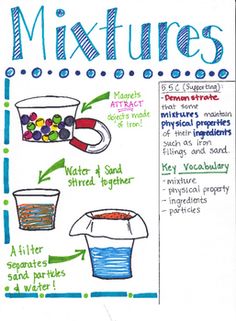 Mixtures
Magnets
ATTRACT
objects made
of Iron!
Water & Sand
stirred together
A filter
separates
sand particles
& water!
5.5C (Supporting):
- Demonstrate
that some
mixtures maintain
physical properties
of their ingredients
such as iron
filings and sand.
Key Vocabulary
- mixture
- physical property
- ingredients
- particles